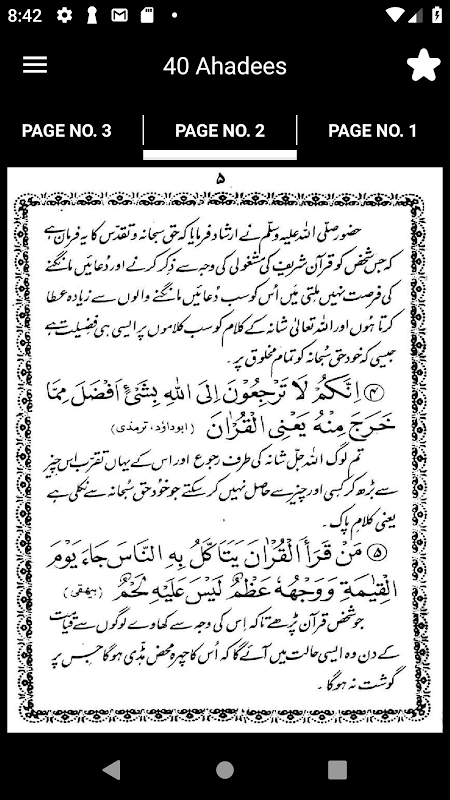 8:42
40 Ahadees
PAGE NO. 3
PAGE NO. 2
PAGE NO. 1
۵
حضور صلی اللہ علیہ وسلم نے ارشاد فرمایا کہ حق سبحانہ و تقدس کا یہ فرمان ہے
کہ جس شخص کو قرآن شریف کی مشغولی کی وجہ سے ذکر کرنے اور دعائیں مانگنے
کی فرصت نہیں ملتی میں اُس کو سب دُعائیں مانگنے والوں سے زیادہ عطا
کرتا ہوں اور اللہ تعالیٰ شانہ کے کلام کو سب کلاموں پر ایسی ہی فضیلت ہے
جیسی کہ خود حق سُبحانہ کو تمام مخلوق پر۔
۴ اِنَّكُمْ لَا تَرْجِعُوْنَ اِلَى اللهِ بِشَىْءٍ اَفْضَلَ مِمَّا
خَرَجَ مِنْهُ يَعْنِى الْقُرْاٰنَ (ابوداؤد، ترمذی)
تم لوگ اللہ جل شانہ کی طرف رجوع اور اس کے یہاں تقرب اس چیز
سے بڑھ کر کسی اور چیز سے حاصل نہیں کر سکتے جو خود حق سبحانہ سے نکلی ہے
یعنی کلام پاک۔
۵ مَنْ قَرَأَ الْقُرْاٰنَ يَتَاَكَّلُ بِهِ النَّاسَ جَاءَ يَوْمَ
الْقِيٰمَةِ وَوَجْهُهٗ عَظْمٌ لَيْسَ عَلَيْهِ لَحْمٌ (بیہقی)
جو شخص قرآن پڑھے تاکہ اس کی وجہ سے کھاوے لوگوں سے قیامت
کے دن وہ ایسی حالت میں آئے گا کہ اُس کا چہرہ محض ہڈی ہوگا جس پر
گوشت نہ ہوگا۔